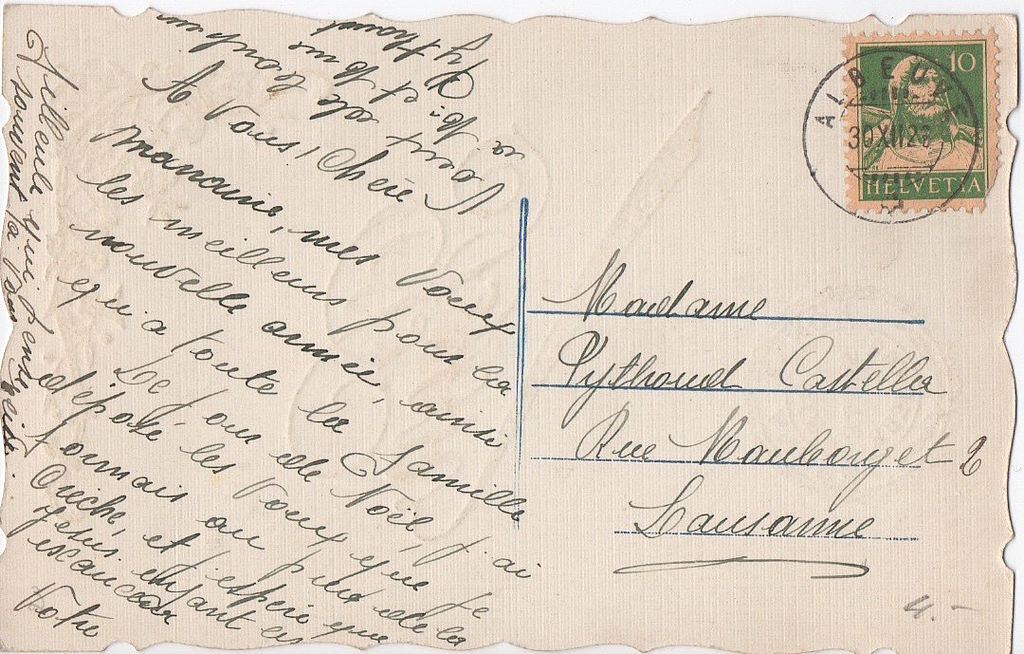 A Vous, Chère
Marraine, mes Vœux
les meilleurs pour la
nouvelle année, ainsi
qu'a toute la famille
Le jour de Noël, j'ai
déposé les Vœux que je
formais au pied de la
Crèche, et j'espère que
Jésus enfant les
exaucera
Votre
Filleule qui pense
souvent à Vous
Tout de bon
à M. et Mme
Madame
Pythoud Castella
Rue Mauborget 2
Lausanne
ALBEUVE
30 XII 23
10
HELVETIA
4.-